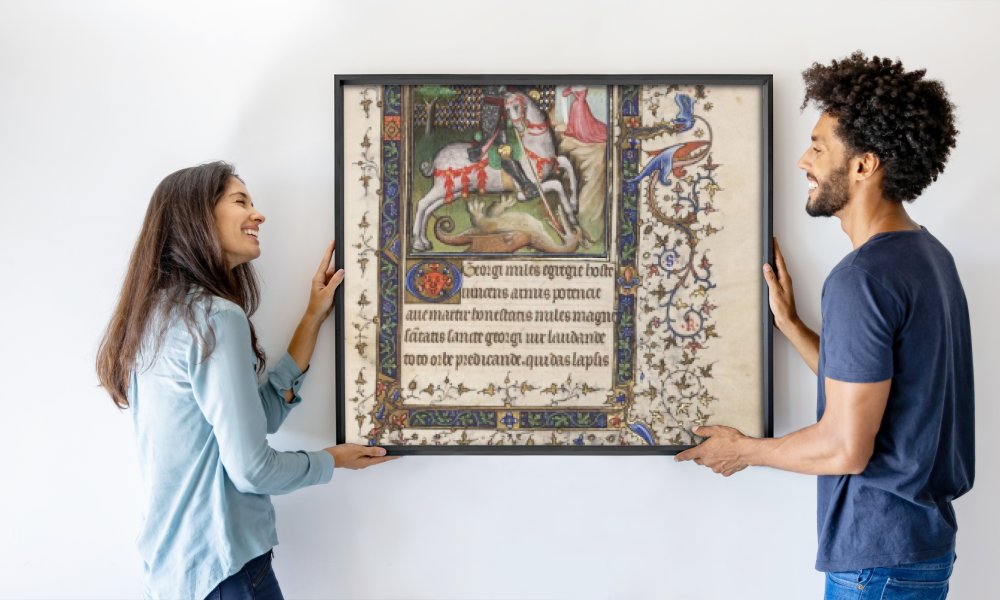 Georgi miles egregie hoste
uincens armis potencie
aue martir honestatis miles magne
scitatis sancte georgi uir laudande
toto orbe predicande. qui das lapsis
S
R